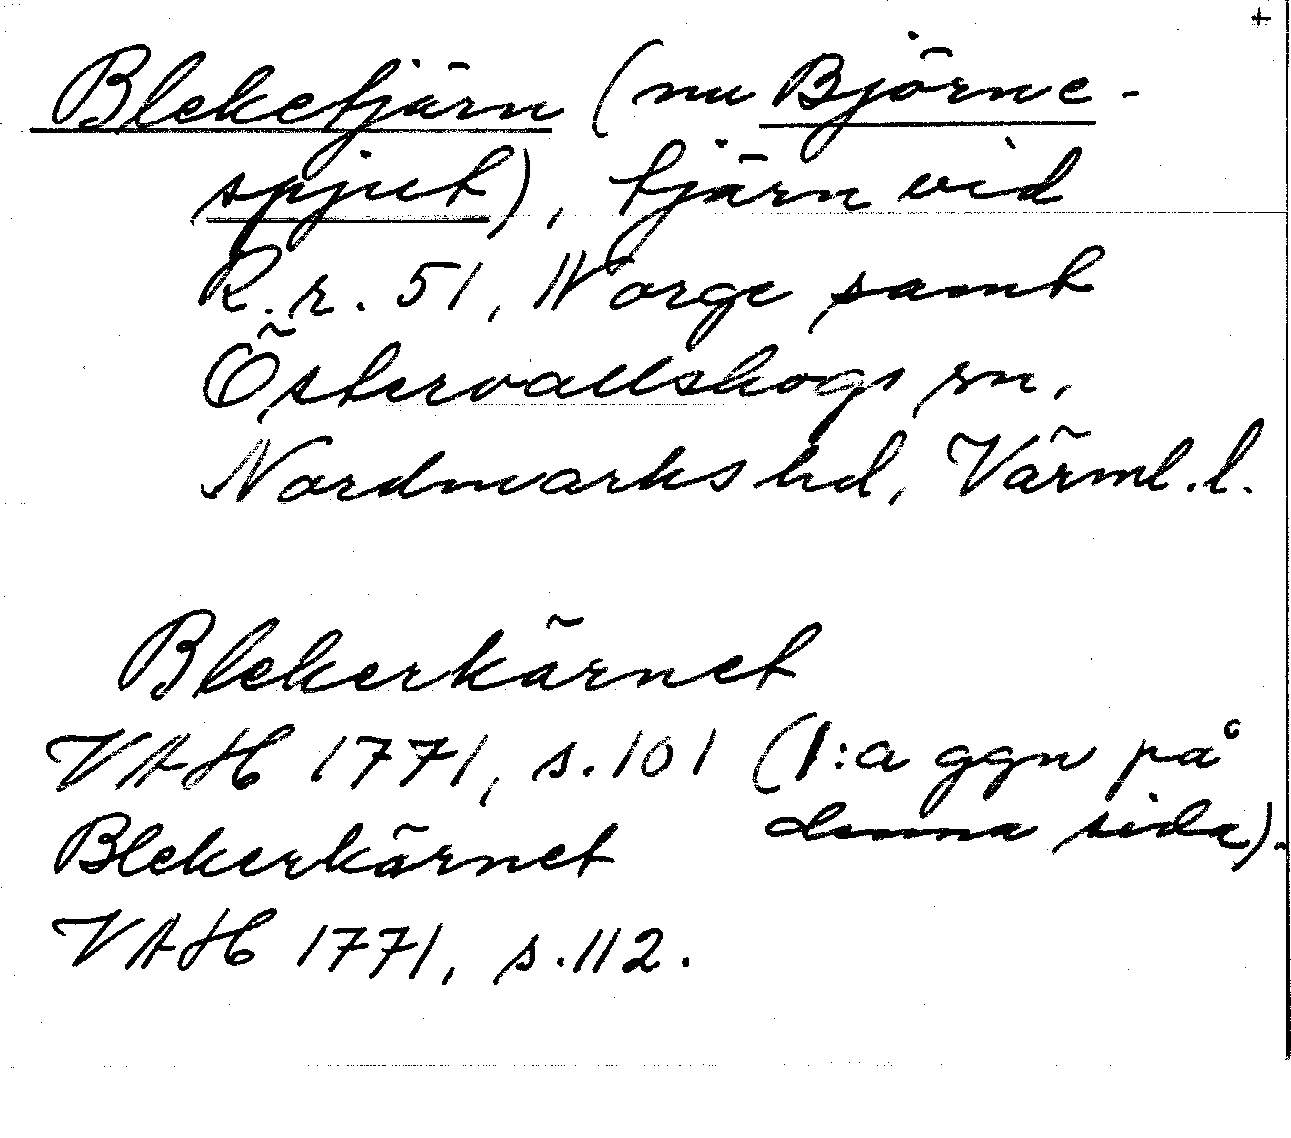 +
Bleketjärn (nu Björne-
spjut), tjärn vid
R.r. 51, Norge samt
Östervallskogs sn,
Nordmarks hd, Värml.l.
Blekerkärnet
VAH 1771, s.101 (1:a ggn på
denna sida).
Blekerkärnet
VAH 1771, s.112.